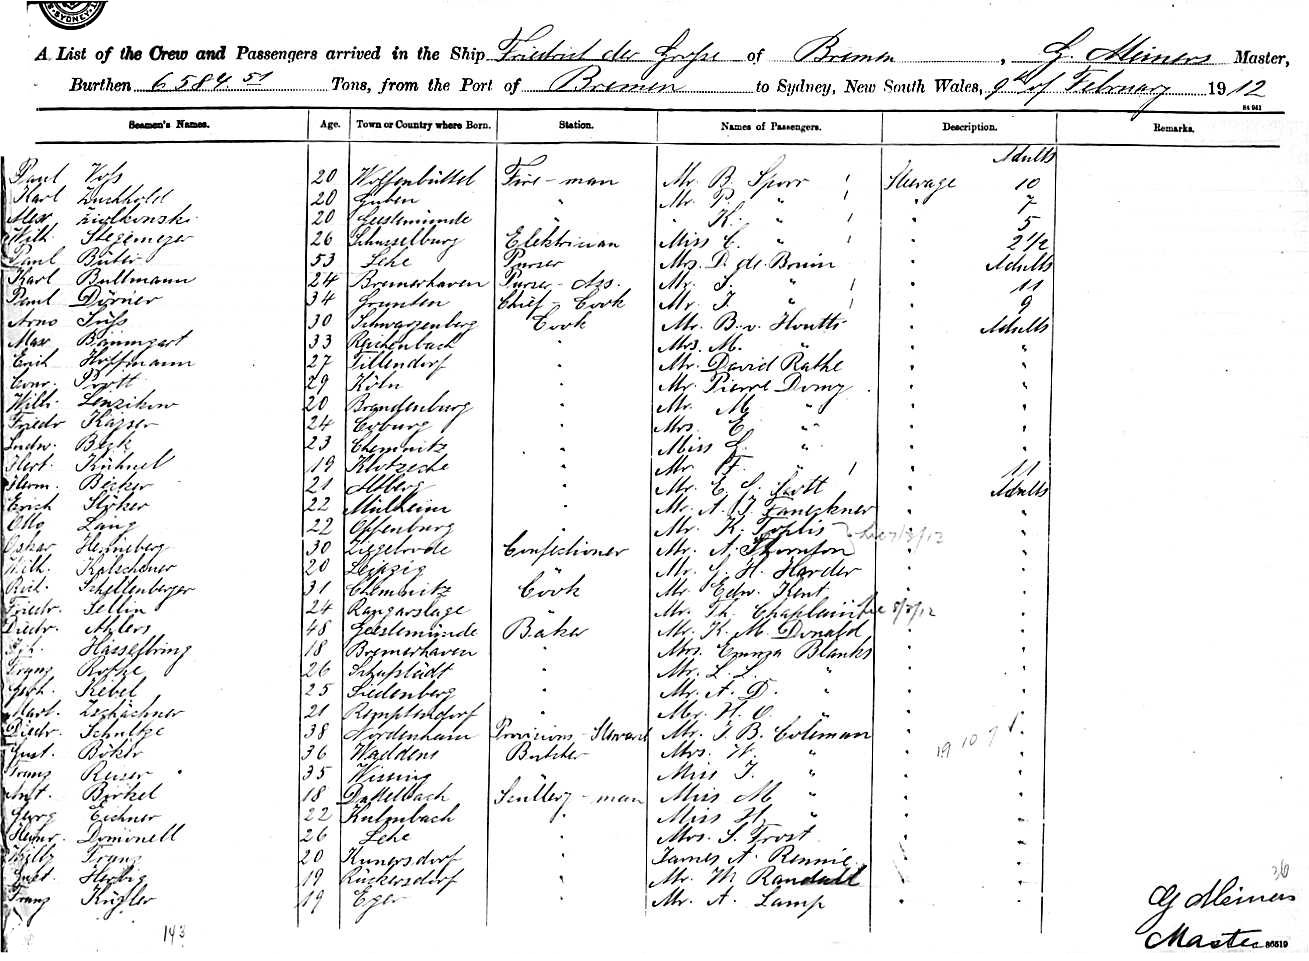 SYDNEY
A List of the Crew and Passengers arrived in the Ship Friedrich der Grosse of Bremen, G. Meiners Master,
Burthen 6584.51 Tons, from the Port of Bremen to Sydney, New South Wales, 9th of February 1912
8A 941
Seamen's Names. Age. Town or Country where Born. Station. Names of Passengers. Description. Remarks.
Adults
Paul Voss 20 Wolfenbüttel Fire-man Mr. B. Sporr 1 Steerage 10
Karl 20 Guben " Mr. P. " 1 " 7
Max Ziolkowski 20 Geestemünde " " H. " 1 " 5
Wilh. Stegemeyer 26 Elektrician Miss C. " 1 " 2 1/2
Paul Büter 53 Lehe Purser Mrs. D. de Bruin " Adults
Karl Bultmann 24 Bremerhaven Purser-Ass. Mr. S. " 1 " 11
Paul Dörner 34 Chief-Cook Mr. J. " 1 " 9
Arno Süss 30 Schwarzenberg Cook Mr. B. v. Houtts " Adults
Max Baumgart 33 Reichenbach " Mrs. M. " " "
Erich Hoffmann 27 Tillendorf " Mr. David Rathe " "
Conr. 29 Köln " Mr. Pierre Domy " "
Willi 20 Brandenburg " Mr. M. " " "
Friedr Kayser 24 Coburg " Mrs. E. " " "
Ludw. Beck 23 Chemnitz " Miss L. " " "
Herb. Kühnel 19 Klotzsche " Mr. F. " 1 " 11
Herm. Becker 21 " Mr. E. S. Scott " Adults
Erich Stöker 22 Mülheim " Mr. A. J. Fauckner " "
Otto Lang 22 Offenburg " Mr. K. Toplis " "
Oskar Henneberg 30 Ziegelrode Confectioner Mr. A. Thornton " "
Wilh. Kalschener 20 Leipzig " Mr. J. H. Harder " "
Rich. Schellenberger 31 Chemnitz Cook Mr. Edw. Kent " "
Friedr. Sellin 24 " Mr. Th. Chaplain 8/2/12 " "
Diedr. Ahlers 48 Geestemünde Baker Mr. H. M. Donald " "
Hasselbring 18 Bremerhaven " Mrs. Emma Blanks " "
Franz Rothe 26 Schafstädt " Mr. L. L. " " "
Gerh. Kebel 25 Siedenberg " Mr. A. D. " " "
Mart. Zschächner 21 Remptendorf " Mr. H. C. " " "
Diedr. Schultze 38 Nordenham Provisions-Steward Mr. J. B. Coleman " "
Gust. Böker 36 Waddens Butcher Mrs. W. " 19 10 7 "
Franz Reiser 35 Wissing " Miss J. " " "
Ant. Birkel 18 Scullery-man Miss M. " " "
Georg Eichner 22 Kulmbach " Miss H. " " "
Heinr. Domönell 26 Lehe " Mrs. S. Frost " "
Willy Franz 20 Kunersdorf " James A. Rennie " "
Gust. Herbig 19 Rückersdorf " Mr. M Randall " "
Franz Kügler 19 Eger " Mr. A. Lamp " "
36
G Meiners
Master
143
86519